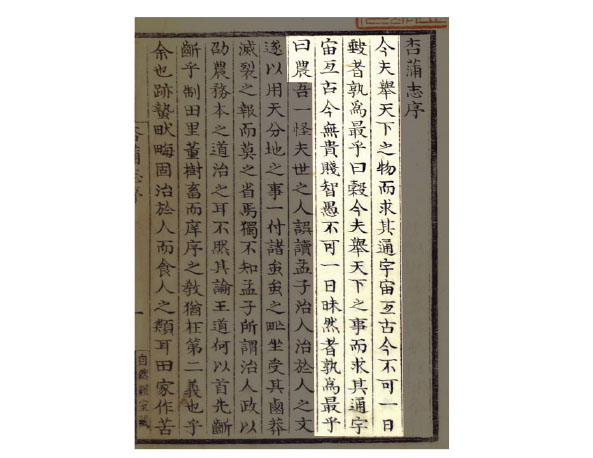 杏蒲志序
今夫舉天下之物而求其通宇宙亙古今不可一日
者孰爲最乎曰穀今夫舉天下之事而求其通宇
宙亙古今無貴賤智愚不可一日昧然者孰爲最乎
曰農吾一怪夫世之人誤讀孟子治人治於人之文
遂以用天分地之事一付諸蚩蚩之甿坐受其鹵莽
滅裂之報而莫之省焉獨不知孟子所謂治人政以
劭農務本之道治之耳不然其論王道何以首先斷
斷乎制田里董樹畜而庠序之敎猶在第二義也乎
余也跡蟄畎畮固治於人而食人之類耳田家作苦
杏蒲志序
一
自然經室藏